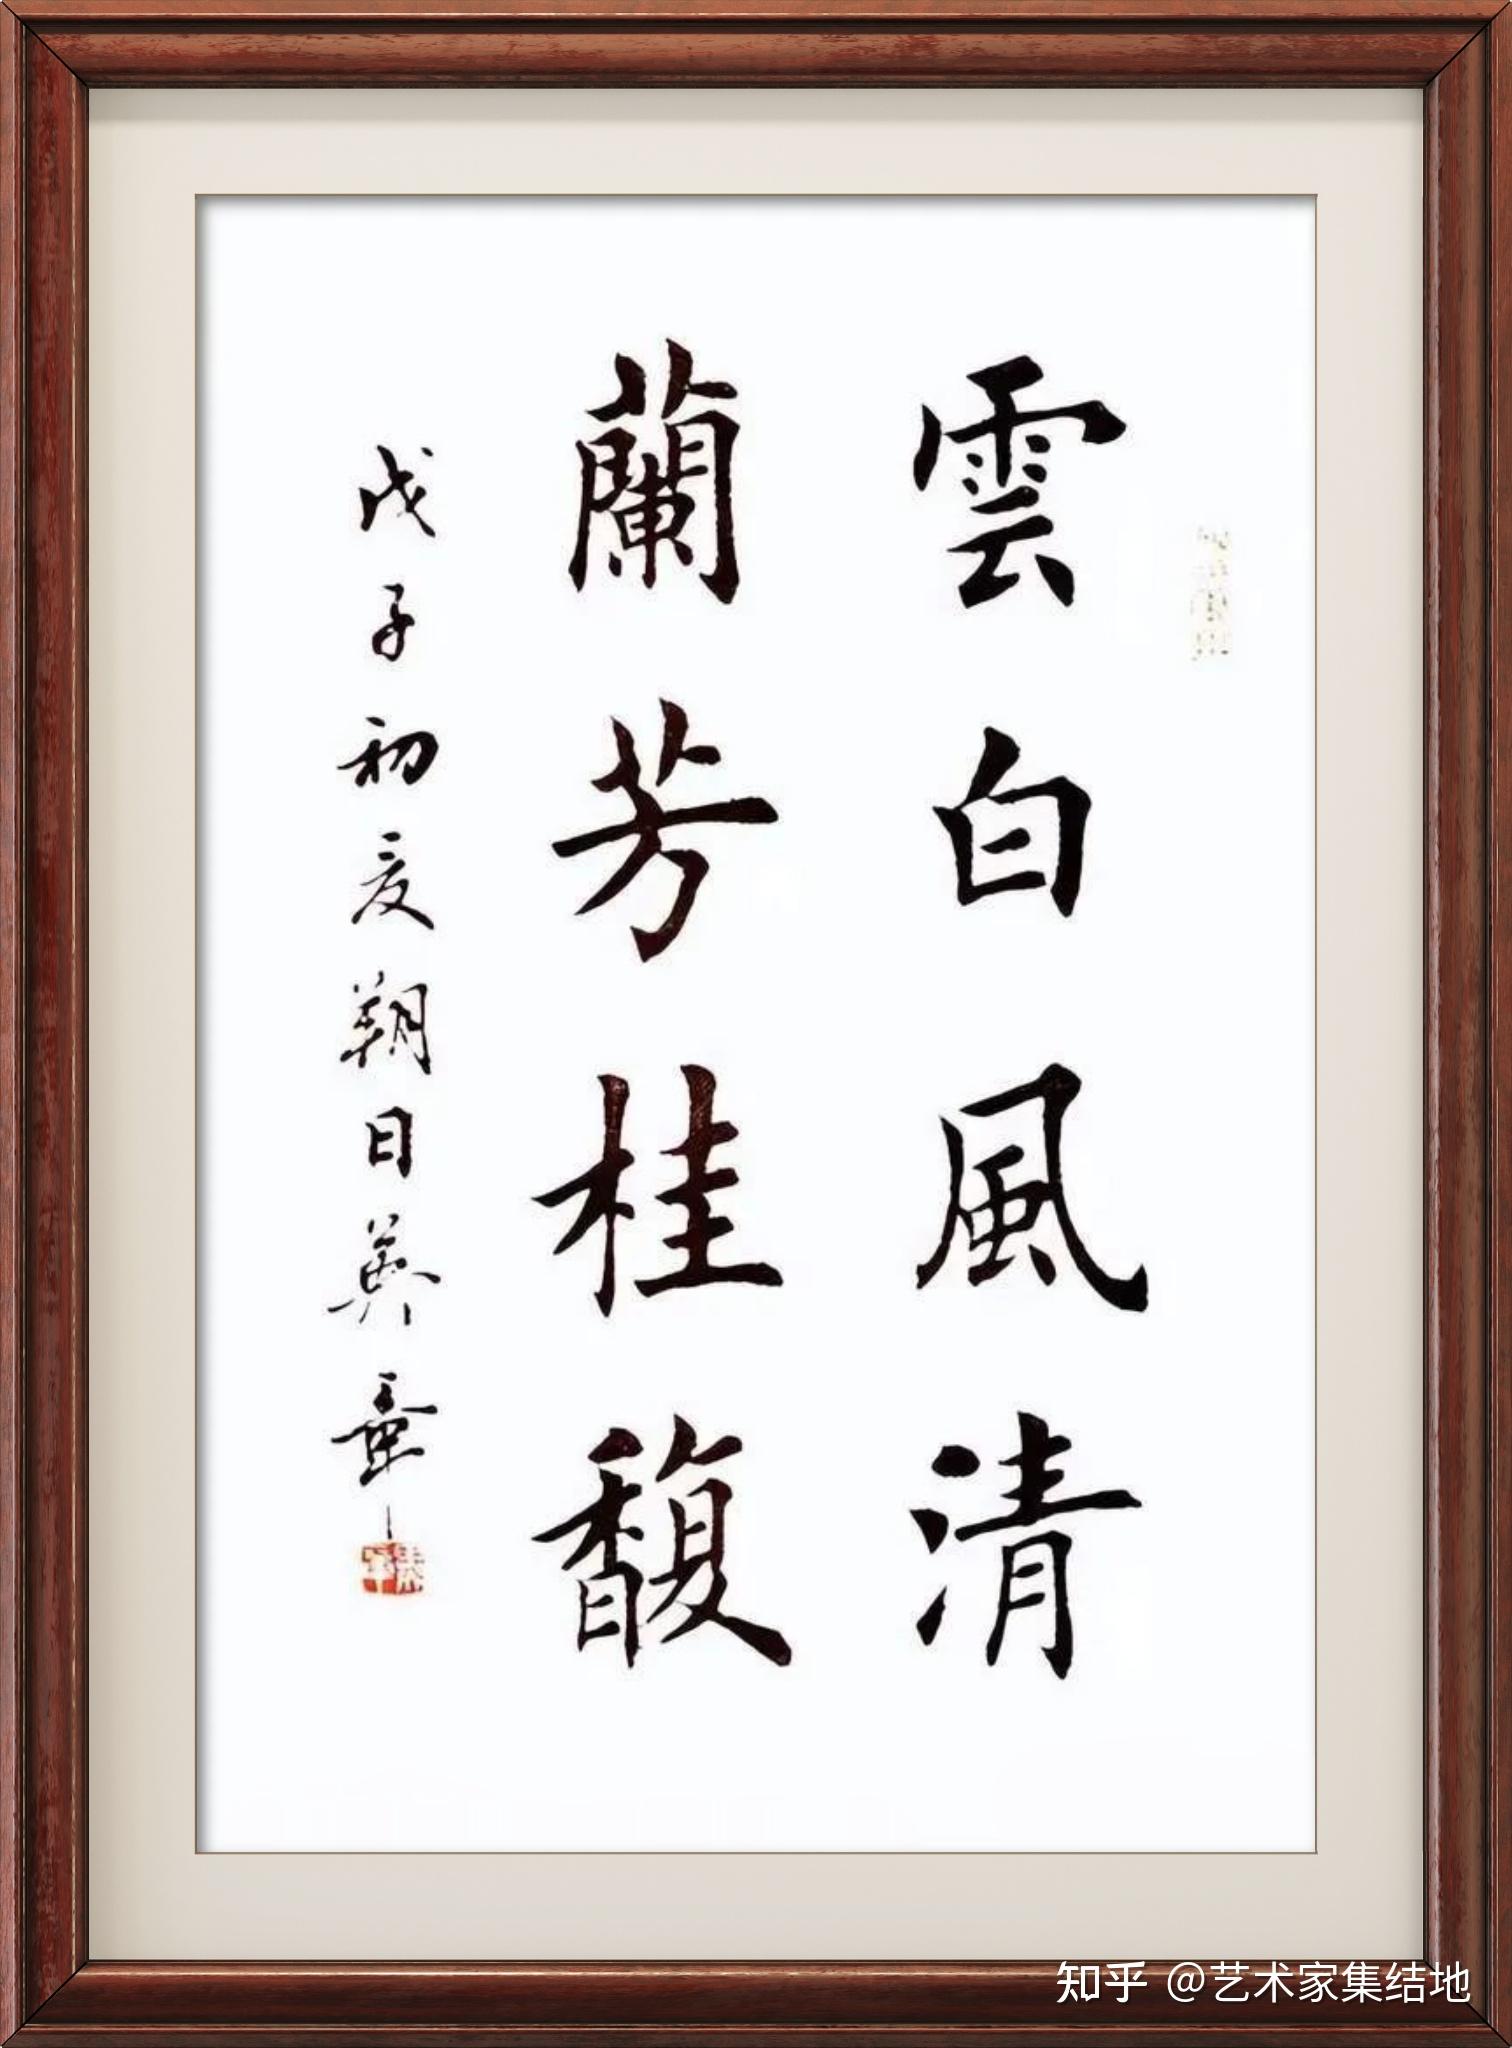 雲白風清
蘭芳桂馥
戊子初夏朔日英章
知乎 @艺术家集结地